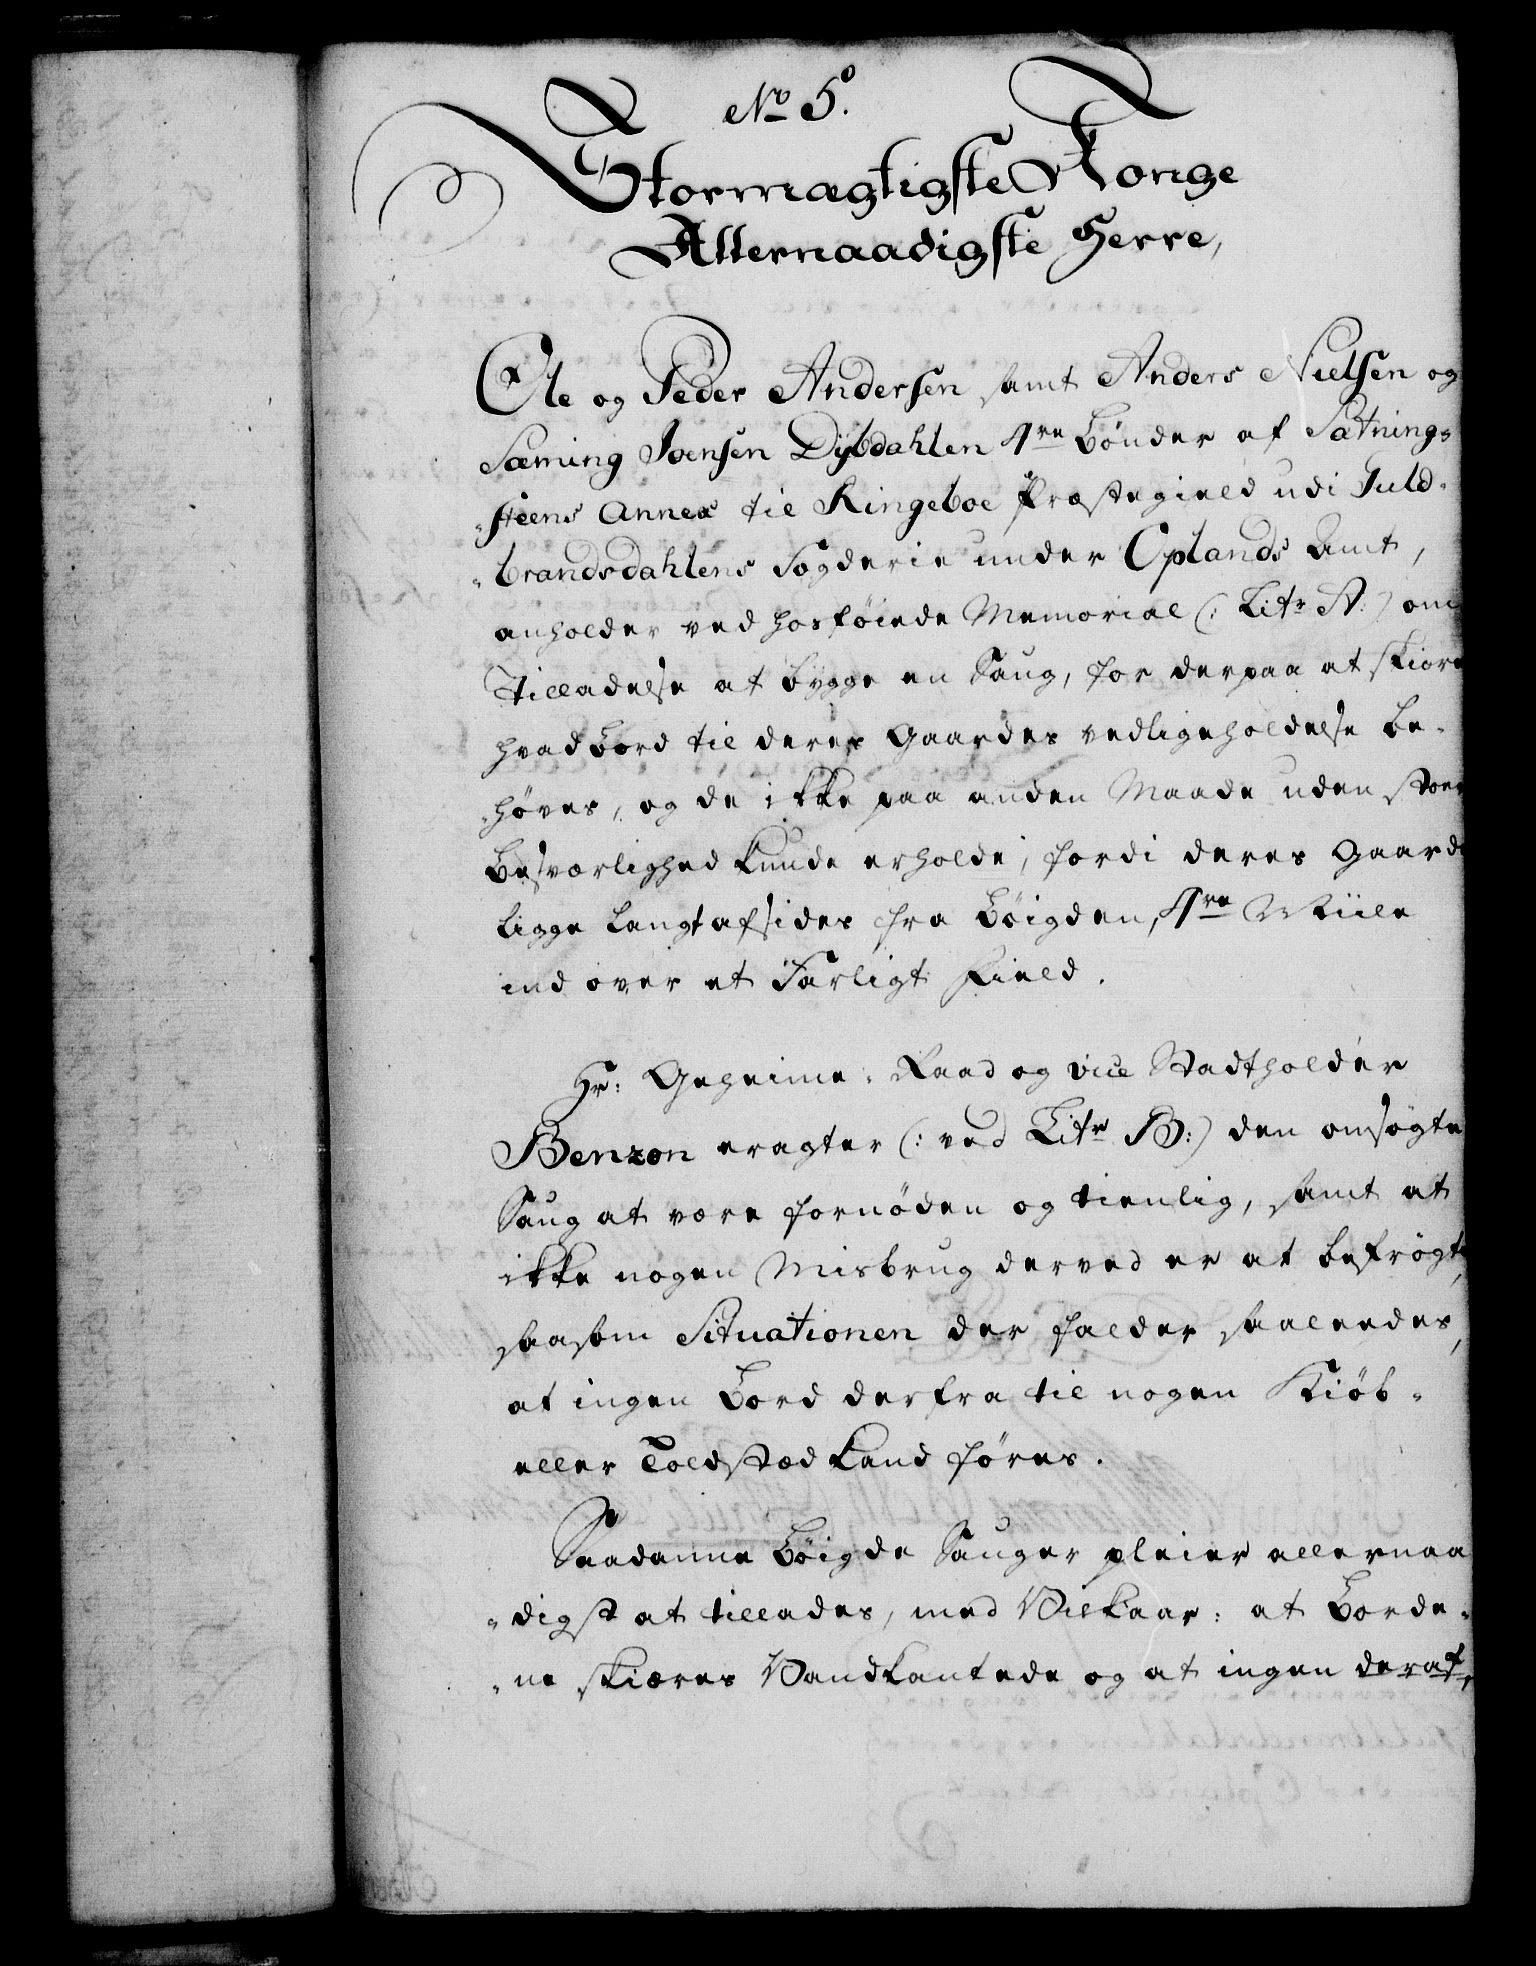 No 5.
Stormægtigste Konge
Allernaadigste Herre,
Ole og Peder Andersen samt Anders Nielsen og
Sæming Joensen Dybdahlen 4re Bønder af Sætnings-
steens Annex til Ringeboe Præstegield udi Guld-
brandsdahlens Fogderie under Oplands Amt,
anholder ved hosføiede Memorial (: Litr A:) om
Tilladelse at bygge en Saug, for derpaa at skiære
hvad Bord til deres Gaardes vedligeholdelse be-
høves, og de ikke paa anden Maade uden stoer
Besværlighed kunde erholde, fordi deres Gaarde
ligge langt afsides fra Bøigden, 4re Miile
ind over et Farligt Field.
Hr: Geheime-Raad og vice Stadtholder
Benzon eragter (: ved Litr B:) den ansøgte
Saug at være fornøden og tienlig, samt at
ikke nogen Misbrug derved er at befrøgte,
saasom Situationen der falder saaleedes,
at ingen Bord derfra til nogen Kiøb-
eller Toldstæd kand føres.
Saadanne Bøigde Sauger pleier allernaa
digst at tillades, med Vilkaar: at Borde-
ne skiæres Vandkantede og at ingen deraf,